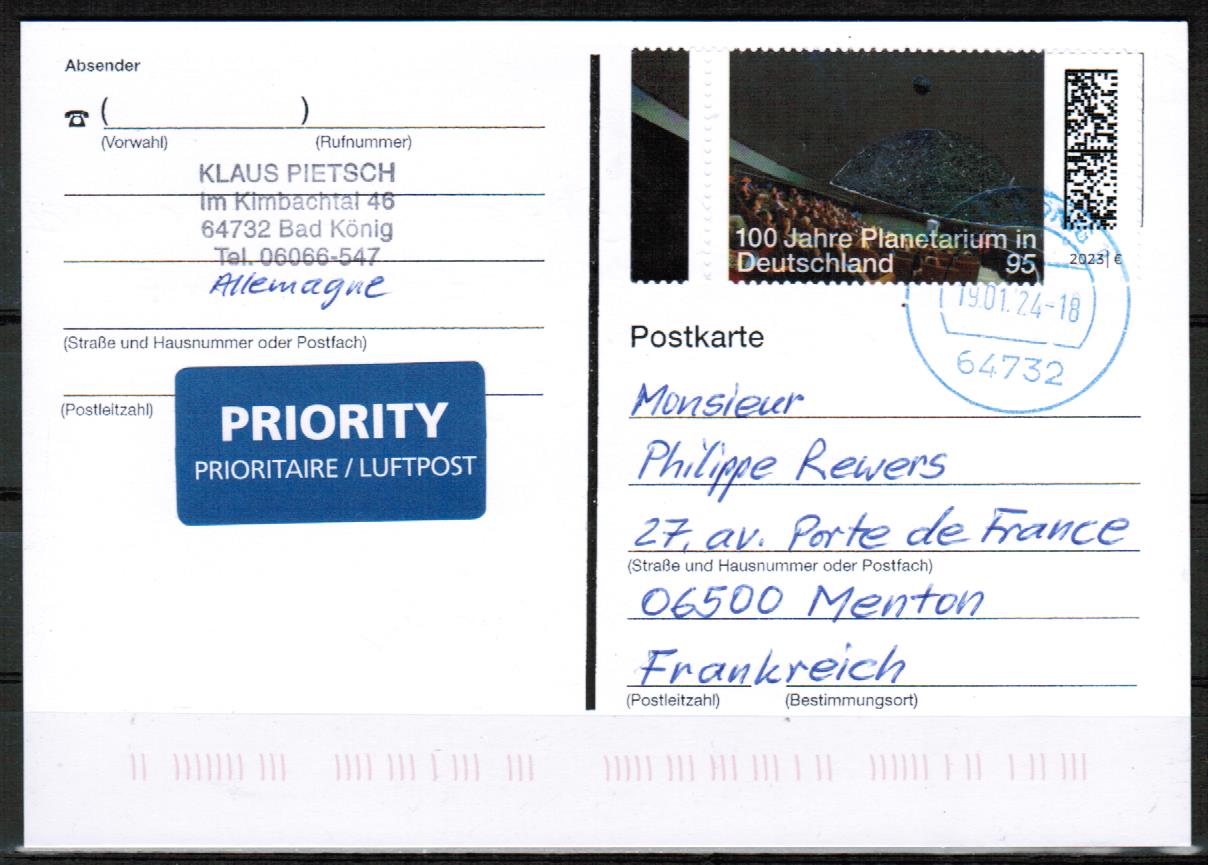 Absender
( )
(Vorwahl) (Rufnummer)
KLAUS PIETSCH
Im Kimbachtal 46
64732 Bad König
Tel. 06066-547
Allemagne
(Straße und Hausnummer oder Postfach)
(Postleitzahl)
PRIORITY
PRIORITAIRE / LUFTPOST
100 Jahre Planetarium in
Deutschland 95
2023 | €
19.01.24-18
64732
Postkarte
Monsieur
Philippe Rewers
27, av. Porte de France
(Straße und Hausnummer oder Postfach)
06500 Menton
Frankreich
(Postleitzahl) (Bestimmungsort)